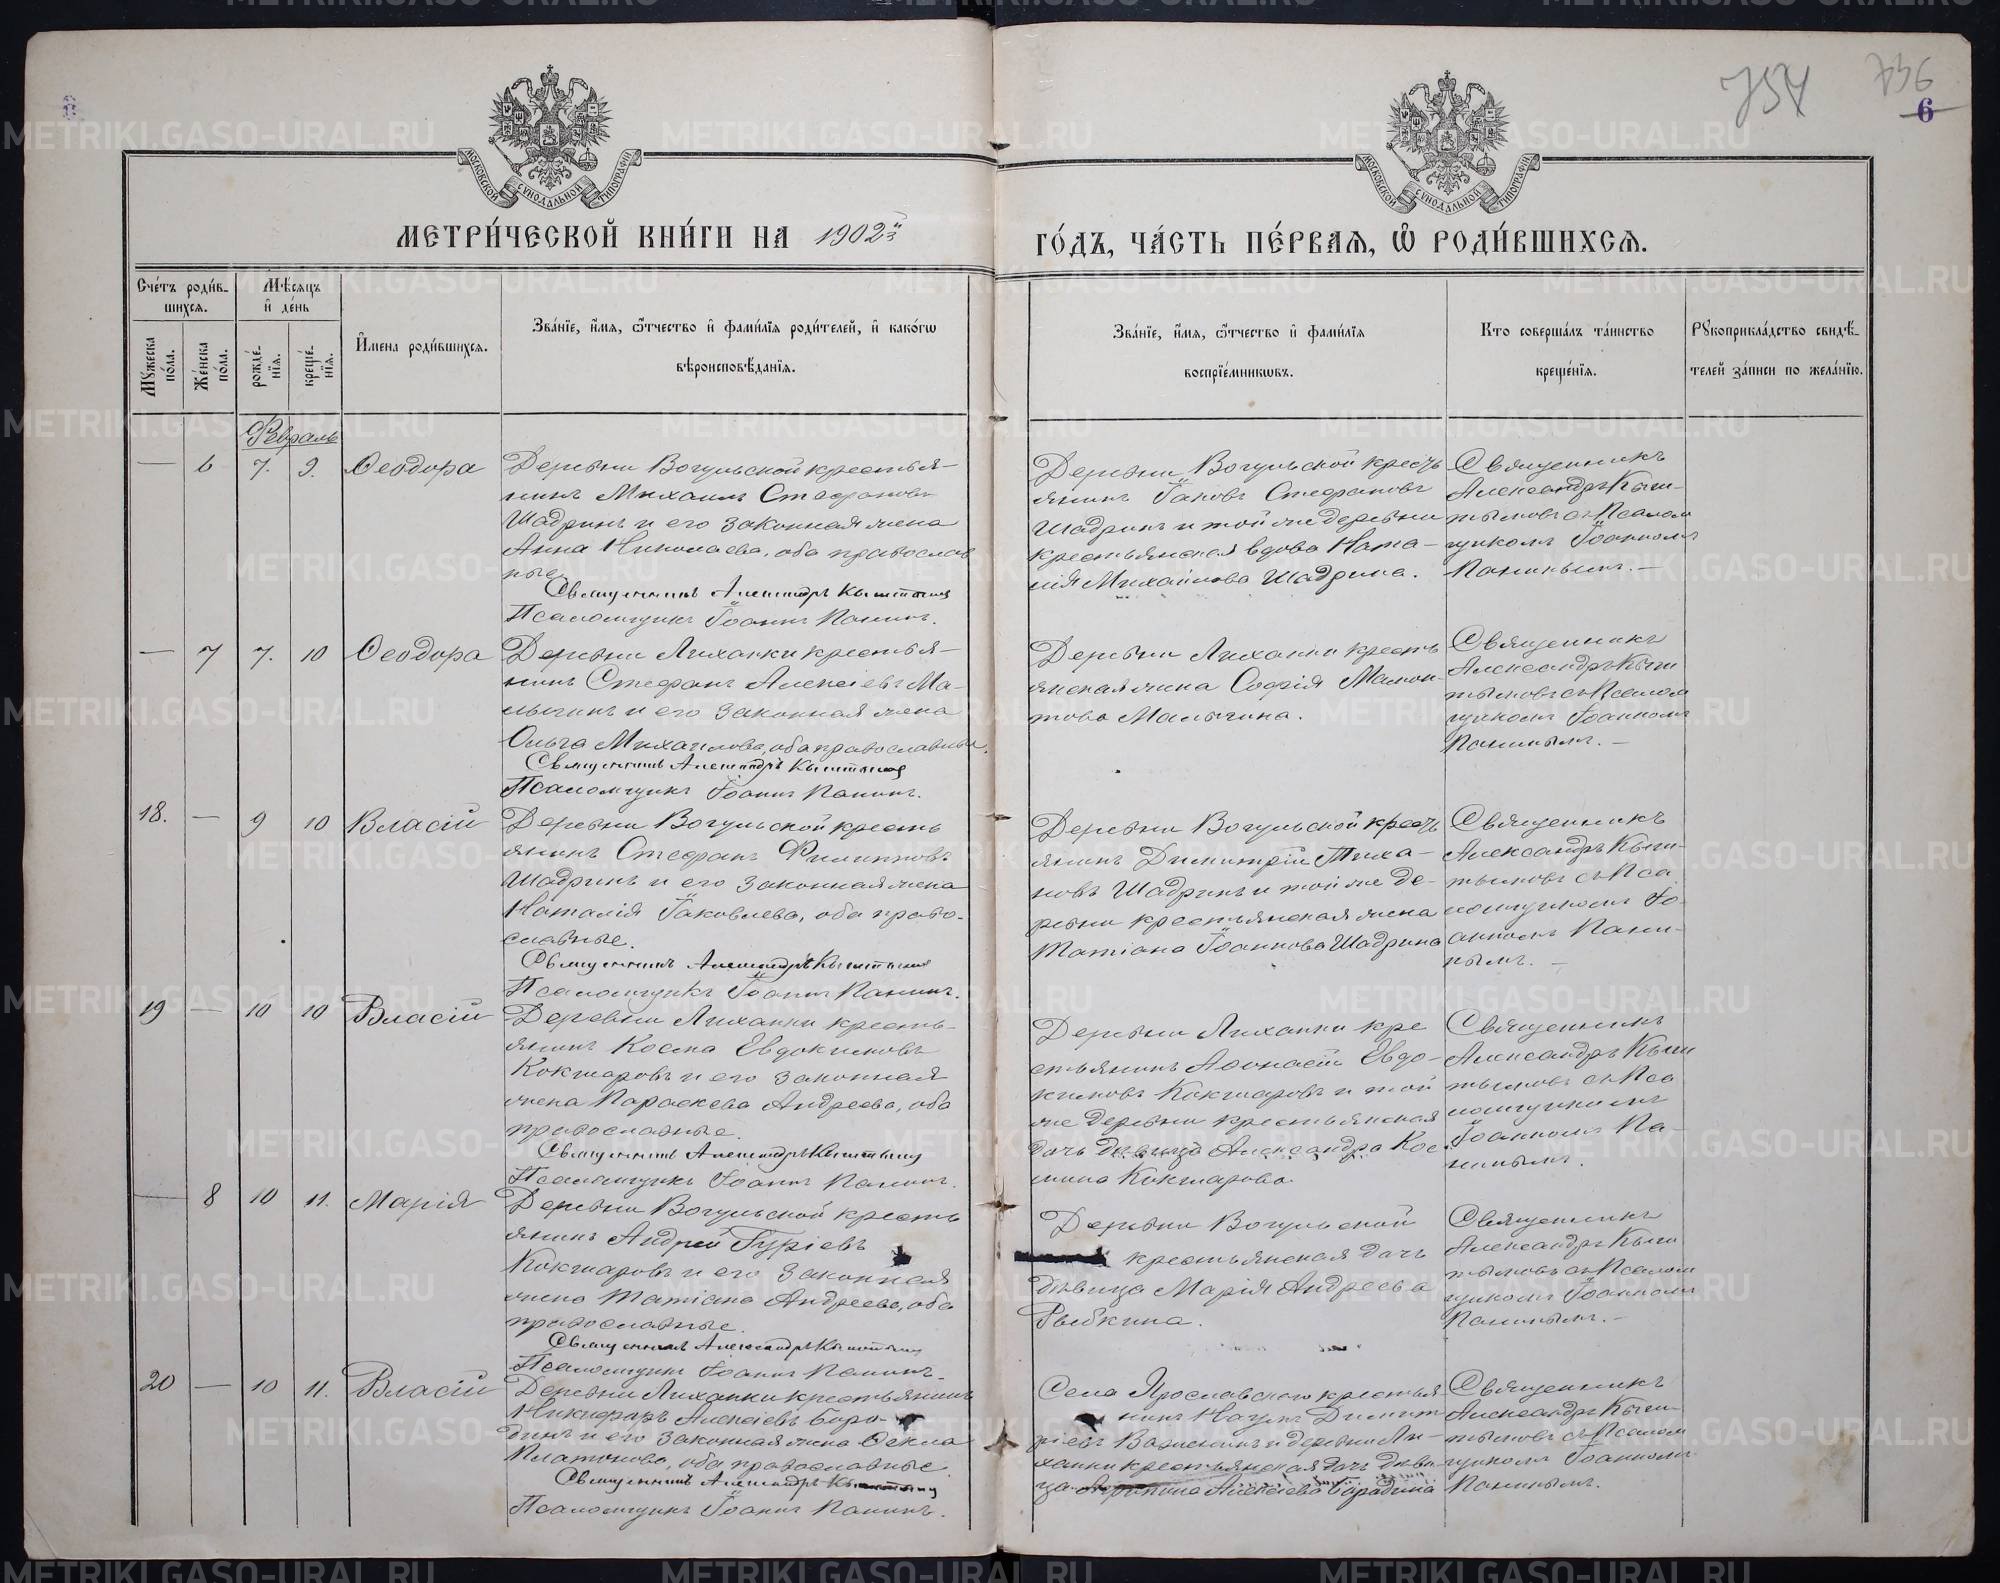 754
746
6
МОСКОВСКОЙ СѴНОДАЛЬНОЙ ТИПОГРАФІИ
МОСКОВСКОЙ СѴНОДАЛЬНОЙ ТИПОГРАФІИ
МЕТРИ́ЧЕСКОЙ КНИ́ГИ НА 1902й
ГО́ДЪ, ЧА́СТЬ ПЕ́РВАѦ, Ѽ РОДИ́ВШИХСѦ.
Сче́тъ роди́в-
шихсѧ.
Мꙋжеска по́ла.
Же́нска по́ла.
Мѣ́сѧцъ и҆ де́нь
рожде́-нїѧ.
креще́-нїѧ.
И҆мена роди́вшихсѧ.
Зва́нїе, и҆́мѧ, ѻ҆́тчество и҆ фами́лїѧ роди́телей, и҆ како́гѡ
вѣроисповѣ́данїѧ.
Зва́нїе, и҆́мѧ, ѻ҆́тчество и҆ фами́лїѧ
воспрїе́мникѡвъ.
Кто соверша́лъ та́инство
креще́нїѧ.
Рꙋкоприкла́дство свидѣ́-
телей за́писи по жела́нїю.
Февраль
— 6 7. 9. Ѳеодора
Деревни Вогульской крестья-
нинъ Михаилъ Стефановъ
Шадринъ и его законная жена
Анна Николаева, оба православ
ные.
Священникъ Александръ Кыштымовъ
Псаломщикъ Іоаннъ Панинъ.
Деревни Вогульской кресть
янинъ Іаковъ Стефановъ
Шадринъ и той же деревни
крестьянская вдова Ната-
лія Михайлова Шадрина.
Священникъ
Александръ Кыш-
тымовъ съ Псалом
щикомъ Іоанномъ
Панинымъ. —
— 7 7. 10 Ѳеодора
Деревни Лиханки крестья-
нинъ Стефанъ Алексіевъ Ма-
лыгинъ и его законная жена
Ольга Михаилова, оба православны.
Священникъ Александръ Кыштымов
Псаломщикъ Іоаннъ Панинъ.
Деревни Лиханки кресть
янская жена Софія Мамон-
това Малыгина.
Священникъ
Александръ Кыш
тымовъ съ Псалом
щикомъ Іоанномъ
Панинымъ. —
18. — 9 10 Власій
Деревни Вогульской кресть
янинъ Стефанъ Филипповъ
Шадринъ и его законная жена
Наталія Іаковлева, оба право-
славные.
Священникъ Александръ Кыштымов
Псаломщикъ Іоаннъ Панинъ.
Деревни Вогульской кресть
янинъ Димитрій Тиха-
новъ Шадринъ и той же де-
ревни крестьянская жена
Татіана Іоаннова Шадрина
Священникъ
Александръ Кыш-
тымовъ съ Пса
ломщикомъ Іо-
анномъ Пани-
нымъ. —
19 — 10 10 Власій
Деревни Лиханки кресть-
янинъ Косма Евдокимовъ
Кокшаровъ и его законная
жена Параскева Андреева, оба
православные.
Священникъ Александръ Кыштымов
Псаломщикъ Іоаннъ Панинъ.
Деревни Лиханки кре
стьянинъ Аѳанасій Евдо-
кимовъ Кокшаровъ и той
же деревни крестьянская
дочь дѣвица Александра Кос
мина Кокшарова.
Священникъ
Александръ Кыш
тымовъ съ Пса
ломщикомъ
Іоанномъ Па-
нинымъ.
— 8 10 11. Марія
Деревни Вогульской кресть
янинъ Андрей Гуріевъ
Кокшаровъ и его законная
жена Татіана Андреева, оба
православные.
Священникъ Александръ Кыштымов
Псаломщикъ Іоаннъ Панинъ.
Деревни Вогульской
крестьянская дочь
дѣвица Марія Андреева
Рыбкина.
Священникъ
Александръ Кыш
тымовъ съ Псалом
щикомъ Іоанномъ
Панинымъ. —
20 — 10 11. Власій
Деревни Лиханки крестьянинъ
Никифоръ Алексіевъ Боро-
динъ и его законная жена Ѳекла
Платонова, оба православные.
Священникъ Александръ
Псаломщикъ Іоаннъ Панинъ.
Села Ярославского крестья
нинъ Наумъ Димит
ріевъ и деревни Ли-
ханки крестьянская дочь дѣви
ца Алексіева Бородина
Священникъ
Александръ Кыш
тымовъ съ Псалом
щикомъ Іоанномъ
Панинымъ.
METRIKI.GASO-URAL.RU